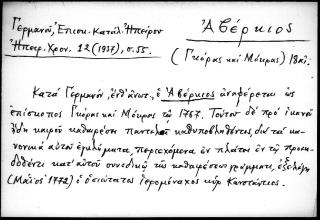 Γερμανοῦ, Ἐπισκ. Κατάλ. Ἠπείρου
Ἠπειρ. Χρον. 12 (1937), σ. 55.
Ἀβέρκιος
(Γκόρας καὶ Μόκρας) 18αἰ.
Κατὰ Γερμανόν, ἔνθ' ἀνωτ., ὁ Ἀβέρκιος ἀναφέρεται ὡς
ἐπίσκοπος Γκόρας καὶ Μόκρας τῷ 1767. Τοῦτον δὲ πρὸ ἱκανοῦ
ἤδη καιροῦ καθαιρέσει παντελεῖ καθυποβληθέντος, διὰ τὰ κα-
νονικὰ αὐτοῦ ἐγκλήματα, περιεχόμενα ἐν πλάτει ἐν τῷ προεκ-
δοθέντι κατ' αὐτοῦ συνοδικῷ τῆς καθαιρέσεως γράμματι, ἐξελέγη
(Μάϊος 1772) ὁ ὁσιώτατος ἱερομόναχος κὺρ Κωνστάντιος.